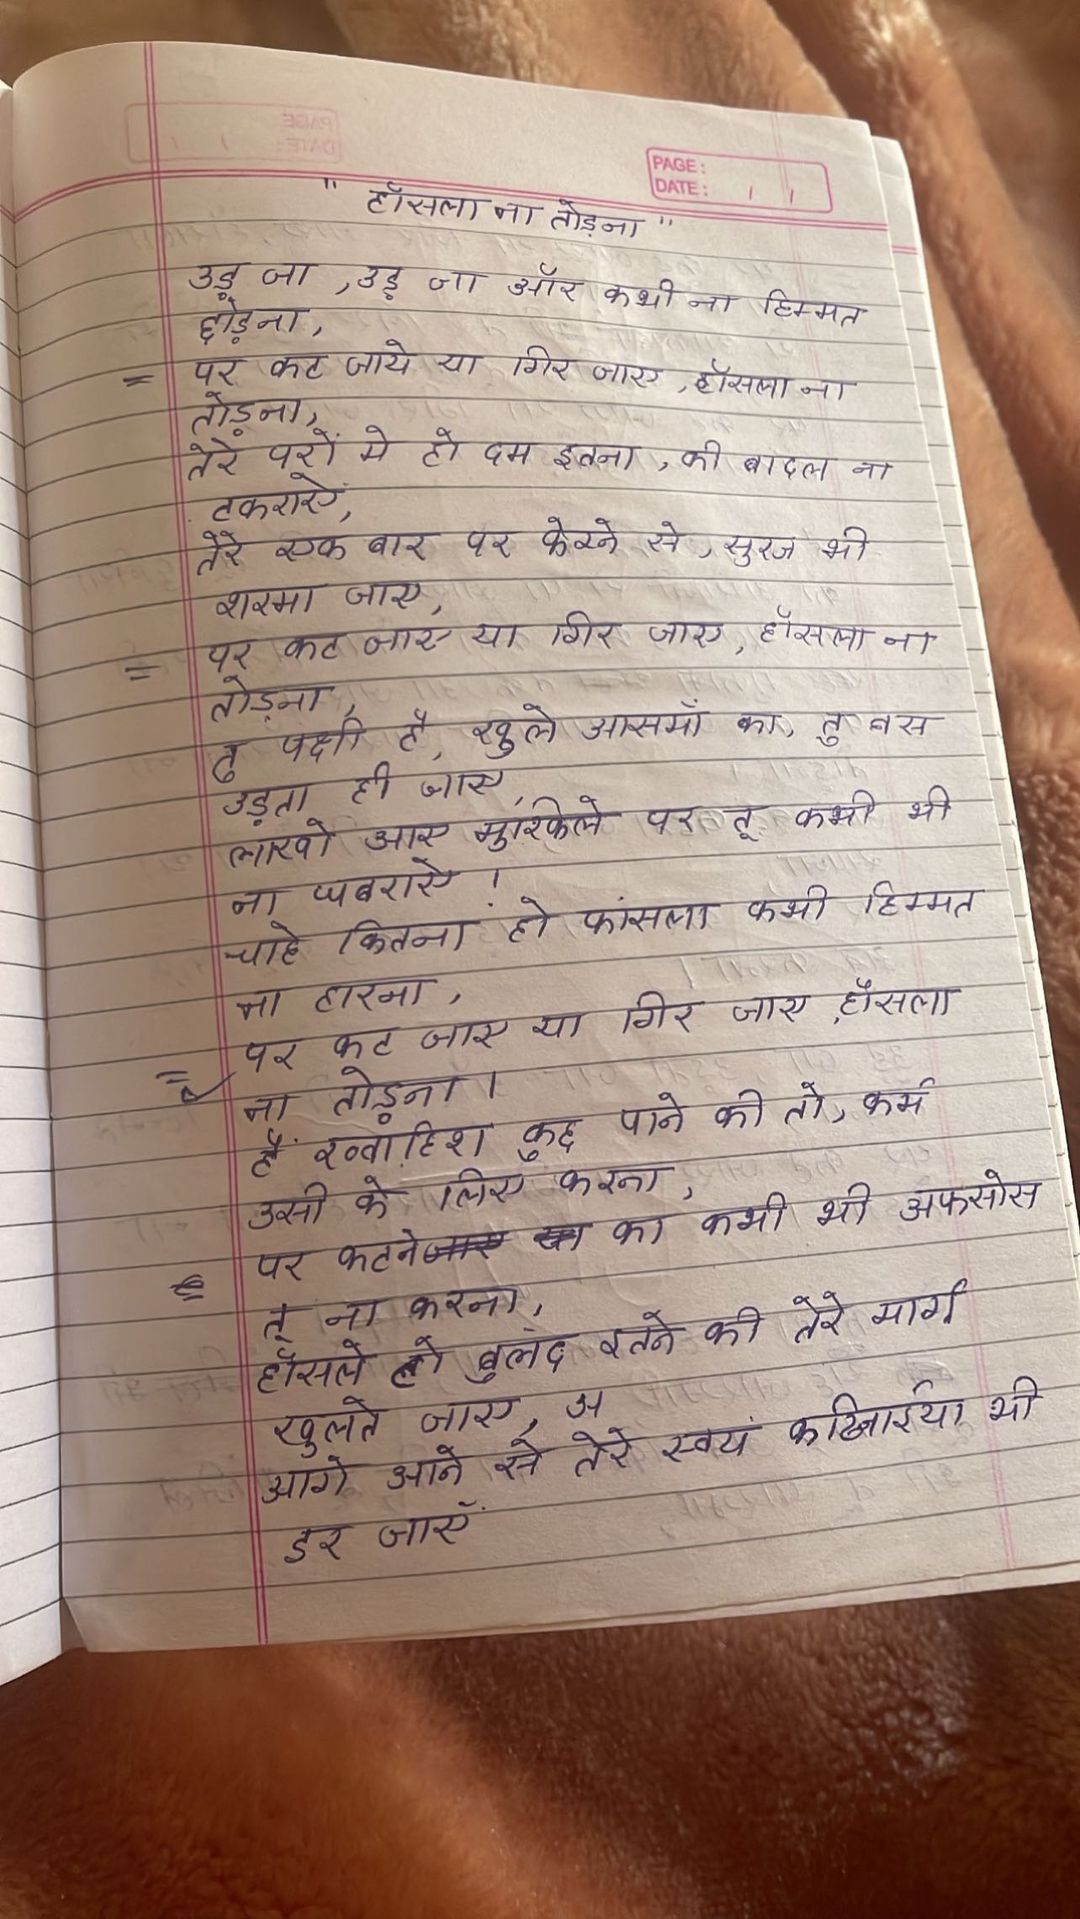 PAGE:
DATE:
" हौसला ना तोड़ना "
उड़ जा , उड़ जा और कभी ना हिम्मत
छोड़ना,
= पर कट जाये या गिर जाए , हौसला ना
तोड़ना,
तेरे परों मे हो दम इतना , की बादल ना
टकराऐं,
तेरे एक बार पर फेरने से , सुरज भी
शरमा जाए,
= पर कट जाए या गिर जाए, हौसला ना
तोड़ना,
तु पक्षी है, खुले आसमाँ का, तु बस
उड़ता ही जाए,
लाखो आए मुश्किले पर तू कभी भी
ना घबराऐ !
चाहे कितना हो फांसला कभी हिम्मत
ना हारना ,
= पर कट जाए या गिर जाए ,हौसला
ना तोड़ना ।
है ख्वाहिश कुछ पाने की तो, कर्म
उसी के लिए करना ,
= पर कटने का कभी भी अफसोस
तू ना करना ,
हौसले हो बुलंद इतने की तेरे मार्ग
खुलते जाए, अ
आगे आने से तेरे स्वयं कठिनाईया भी
डर जाएँ